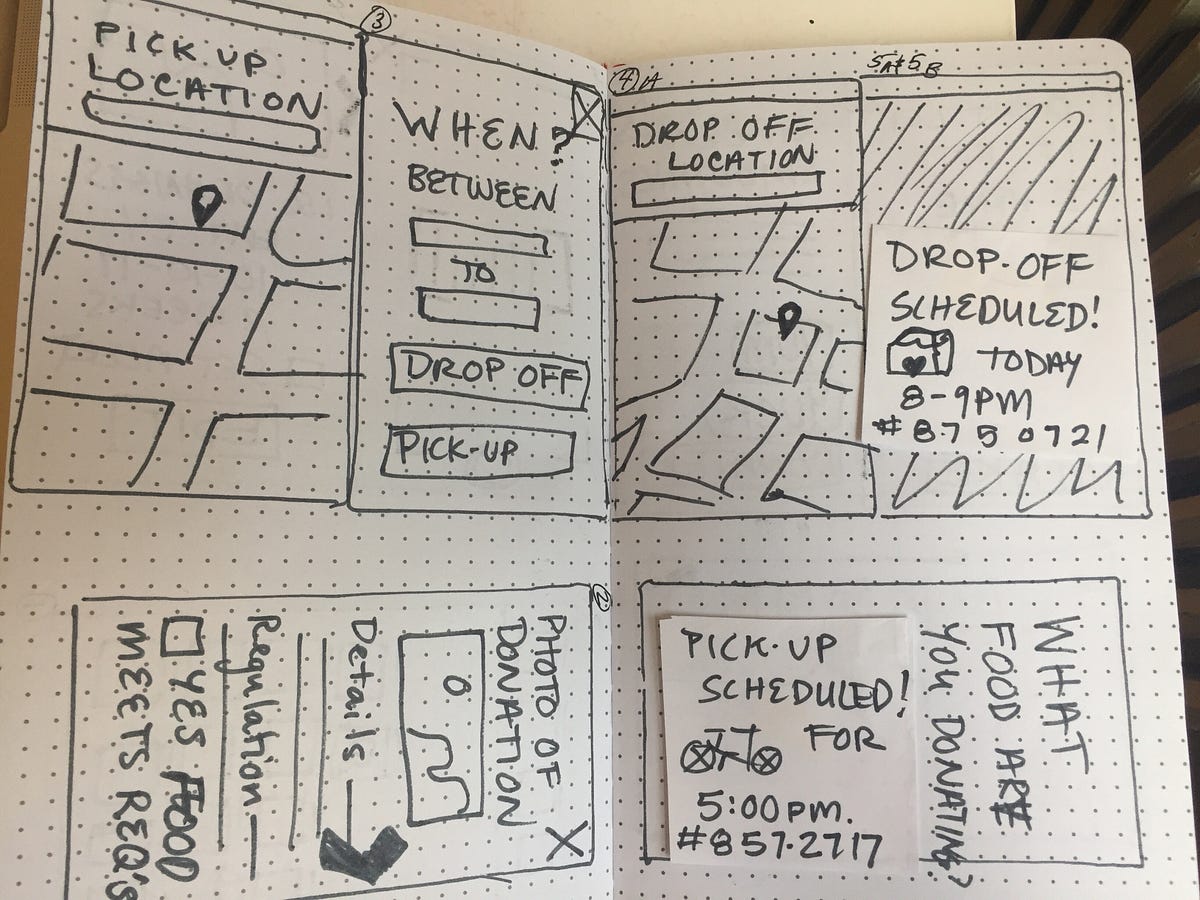 PICK UP
LOCATION
3
WHEN?
BETWEEN
TO
DROP OFF
PICK-UP
4 A
DROP OFF
LOCATION
5A&5B
DROP-OFF
SCHEDULED!
TODAY
8-9PM
#8750721
2
PHOTO OF
DONATION
Details
Regulation
YES FOOD
MEETS REQ's
WHAT
FOOD ARE
YOU DONATING?
PICK-UP
SCHEDULED!
FOR
5:00pm.
#857-2717